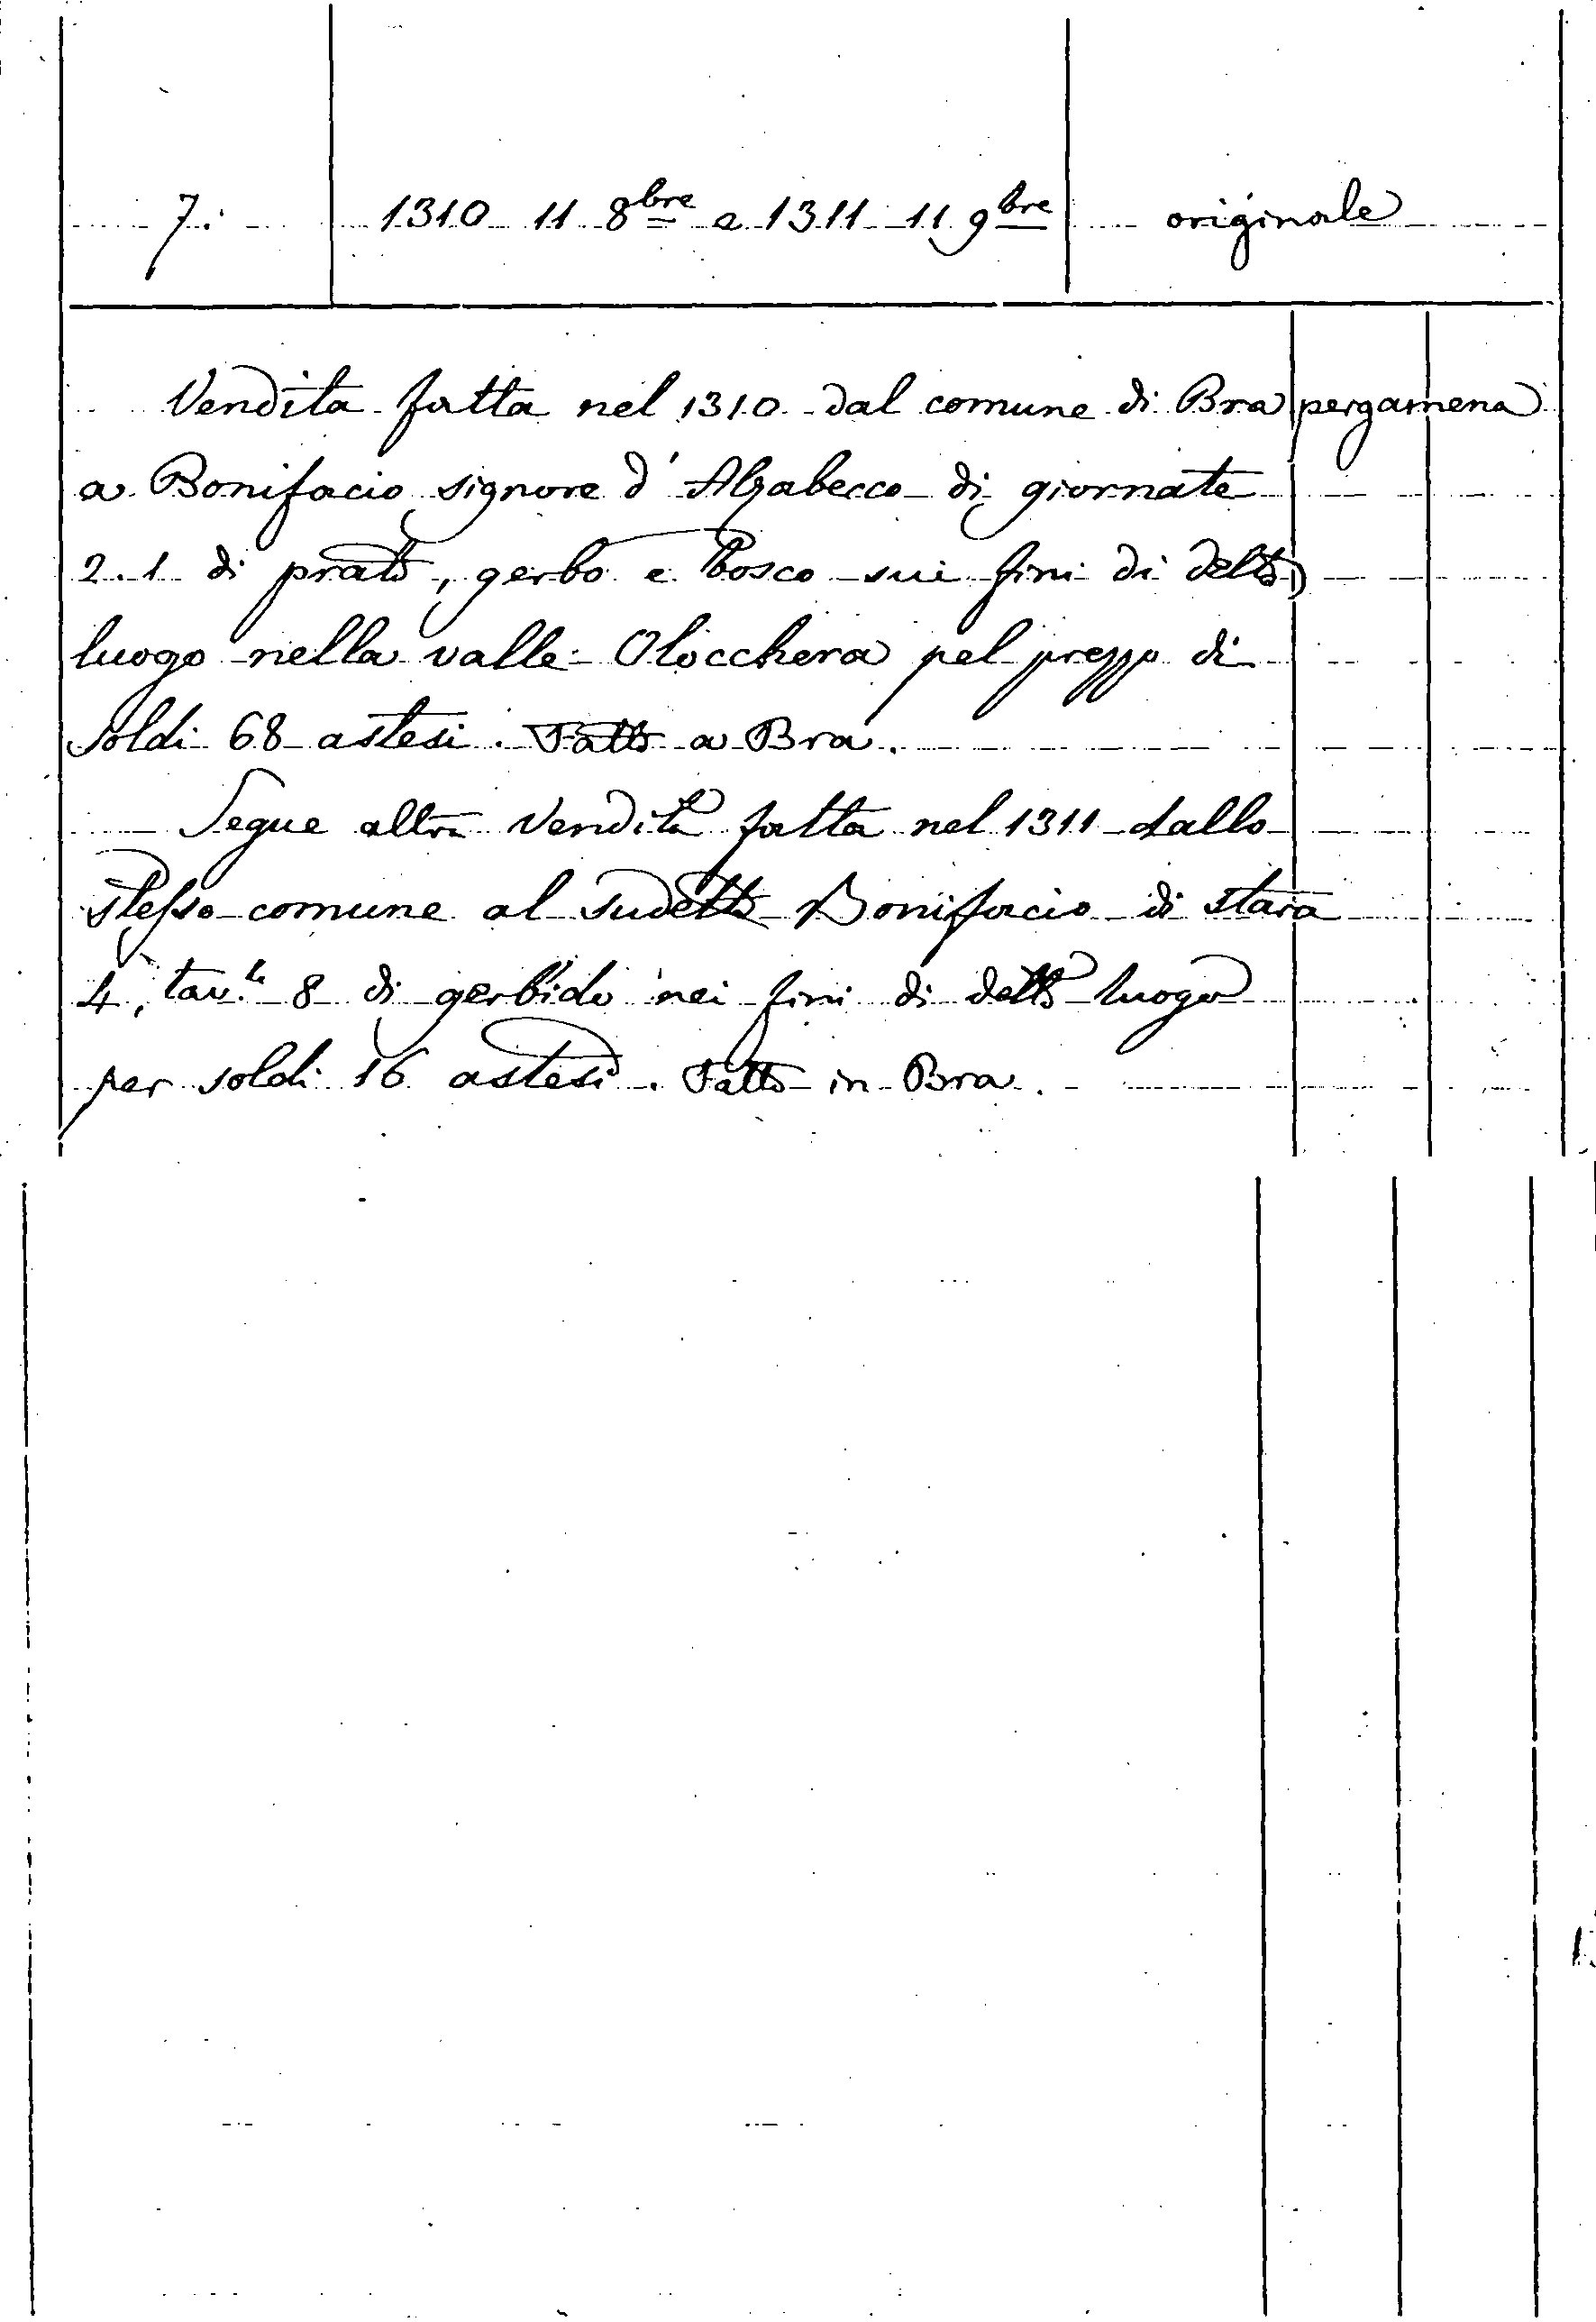 7. 1310 11 8bre e 1311 11 9bre originale
Vendita fatta nel 1310 dal comune di Bra pergamena
a Bonifacio signore d' Alzabecco di giornate
2.1 di prato, gerbo e bosco sui fini di detto
luogo nella valle Olocchera pel prezzo di
soldi 68 astesi. Fatto a Bra.
Segue altra vendita fatta nel 1311 dallo
stesso comune al sudetto Bonifacio di stara
4, tav.le 8 di gerbido nei fini di detto luogo
per soldi 16 astesi. Fatto in Bra.